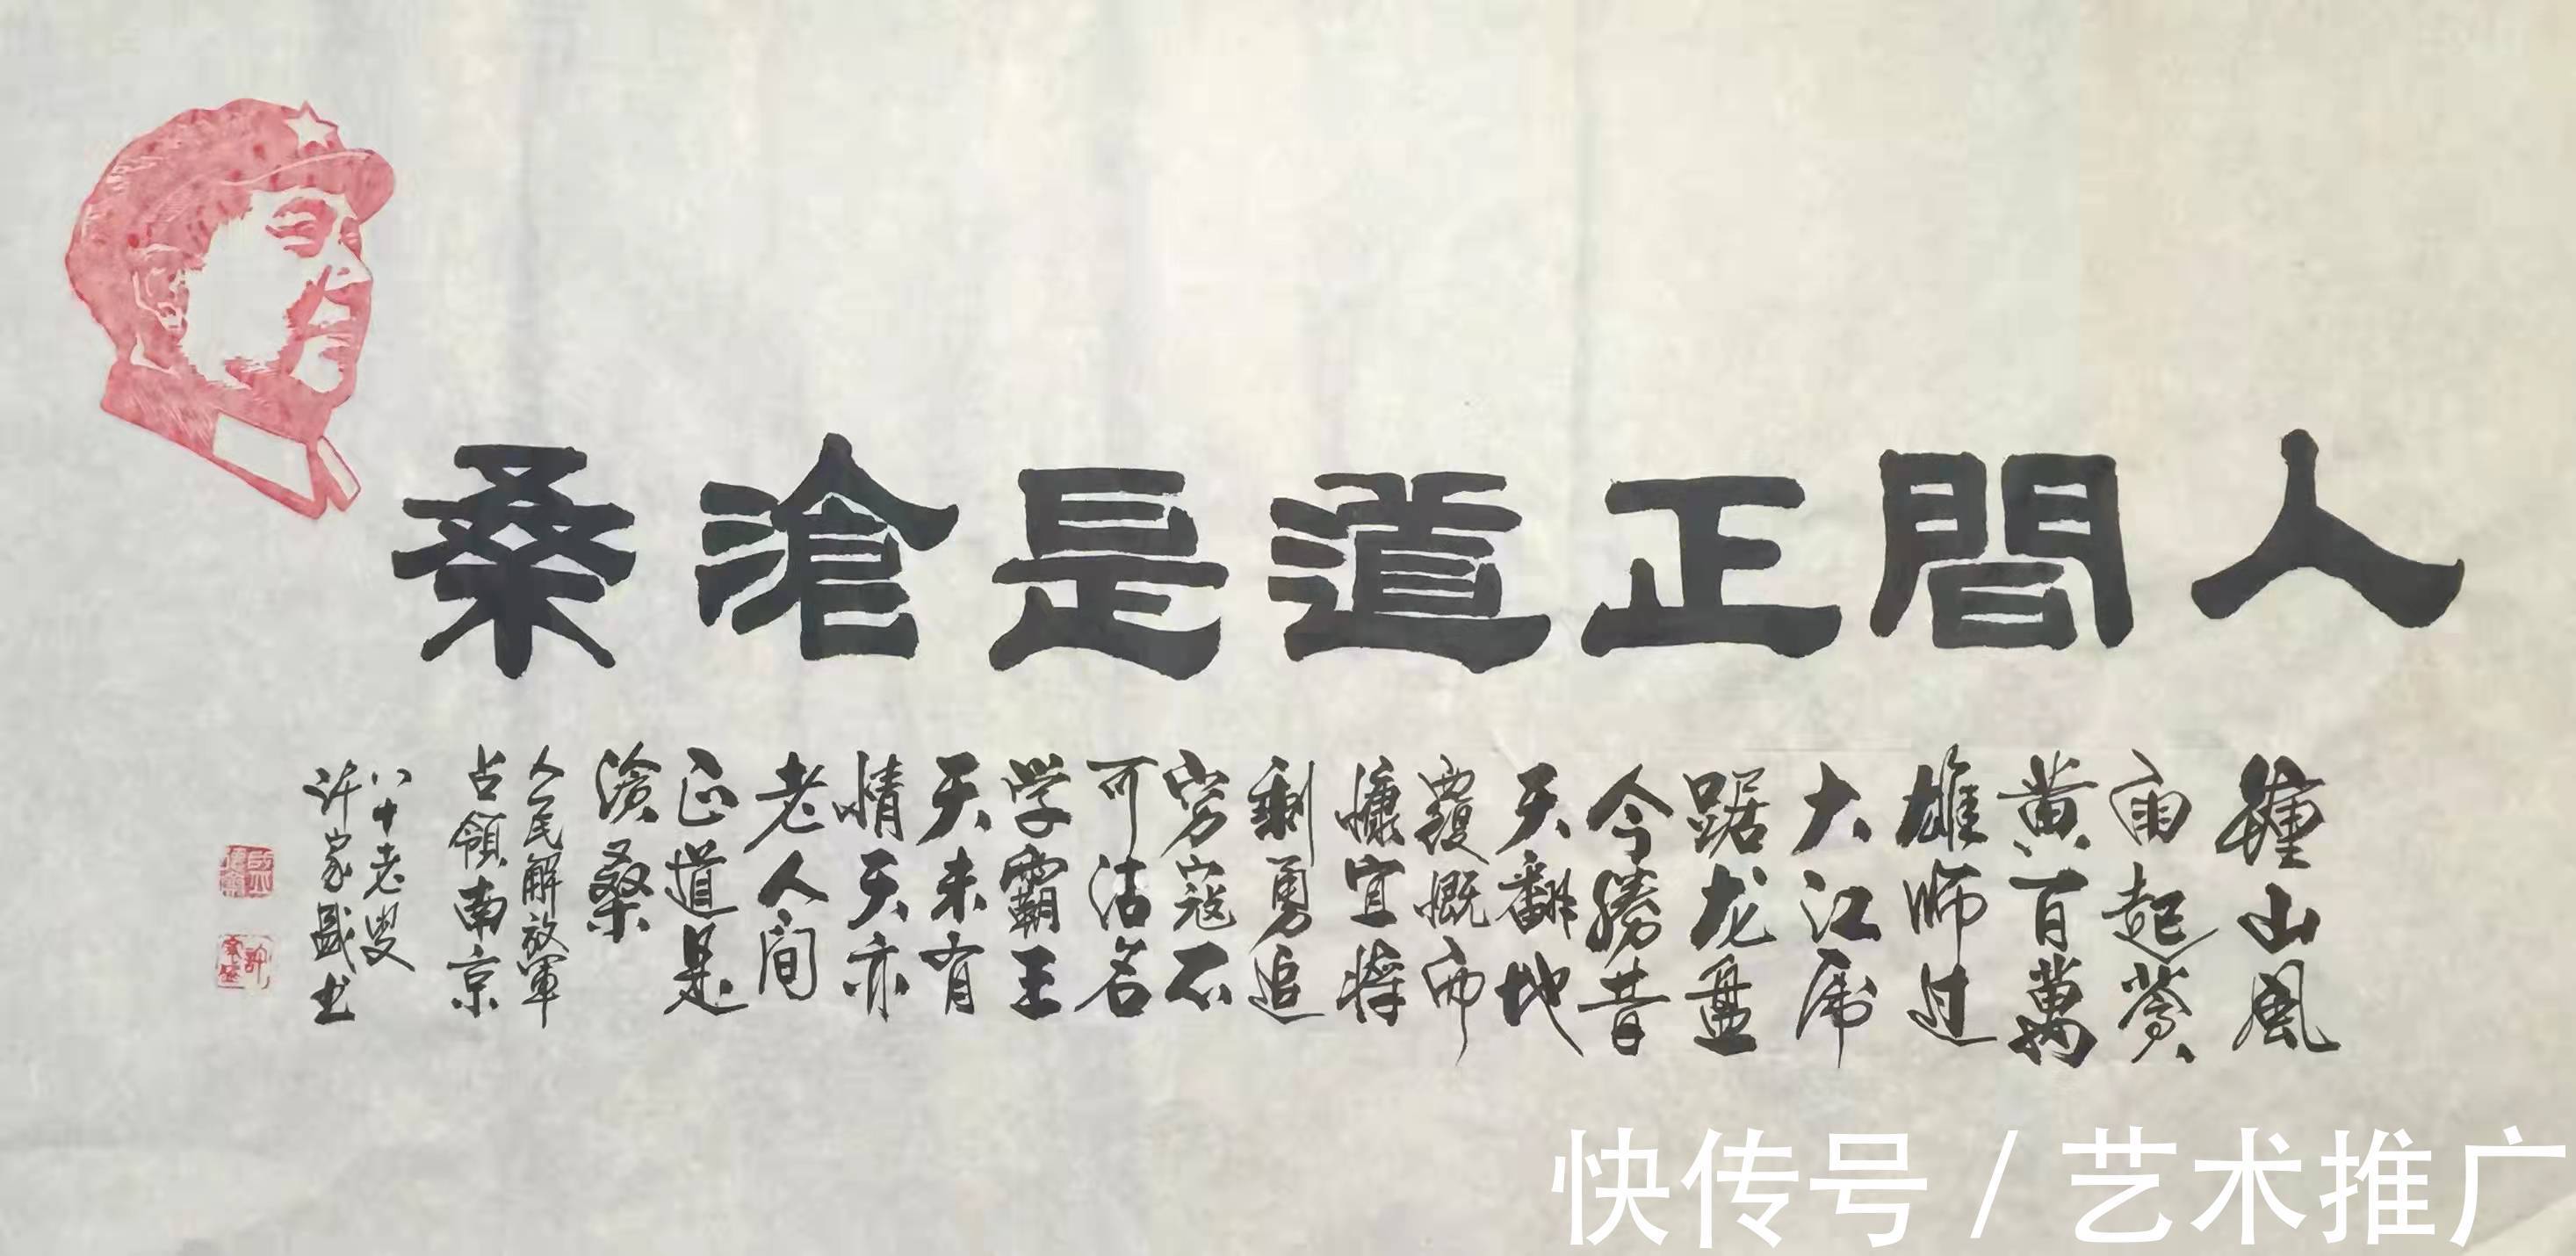 人間正道是滄桑
鍾山風
雨起蒼
黄百萬
雄师过
大江虎
踞龙盘
今勝昔
天翻地
覆慨而
慷宜将
剩勇追
穷寇不
可沽名
学霸王
天未有
情天亦
老人间
正道是
滄桑
人民解放軍
占領南京
八十老叟
许家盛书
快传号 / 艺术推广